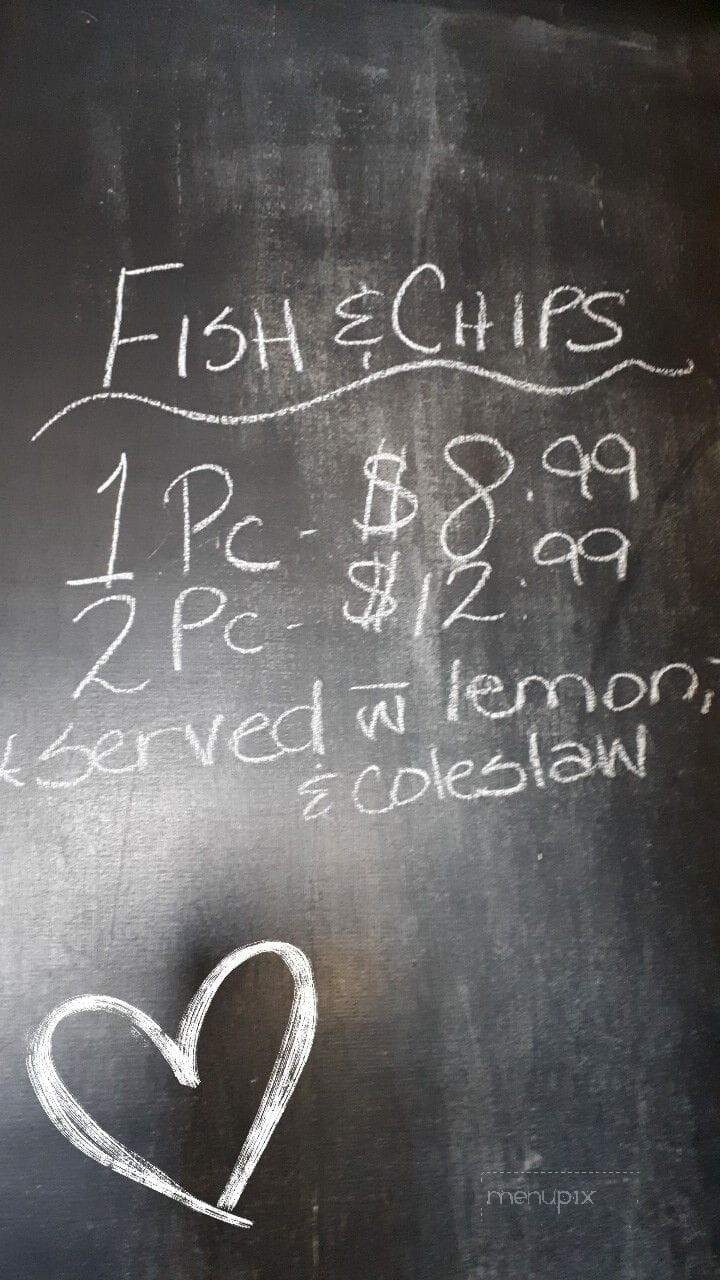 FISH & CHIPS
1 Pc - $8.99
2 Pc - $12.99
served w̅ lemon,
& coleslaw
menupix